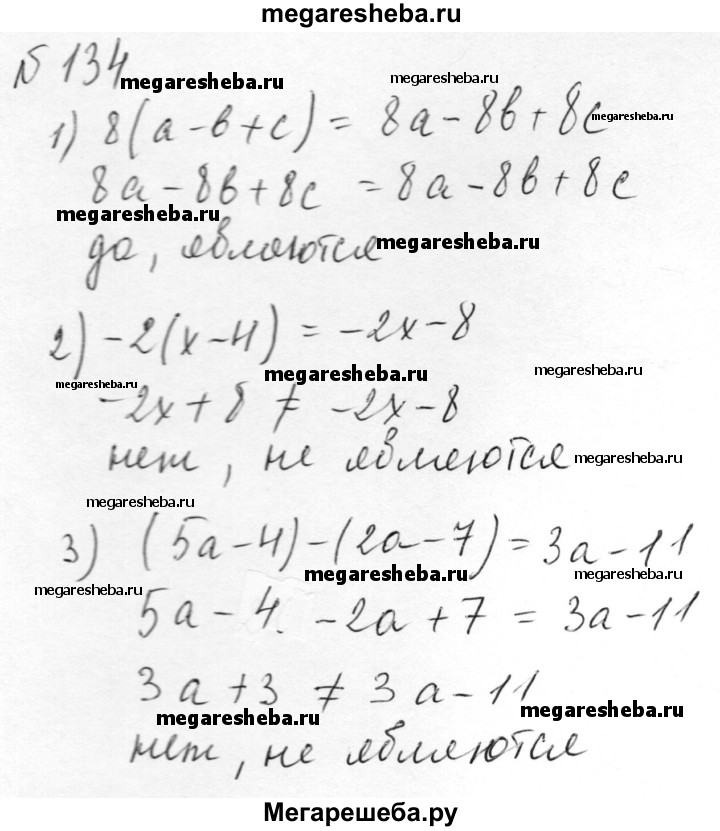 megaresheba.ru
№ 134
megaresheba.ru megaresheba.ru
1) 8(a-в+c) = 8a-8в+8c
megaresheba.ru
8a-8в+8c = 8a-8в+8c
megaresheba.ru
да, являются
megaresheba.ru
2) -2(x-4) = -2x-8
megaresheba.ru megaresheba.ru megaresheba.ru
-2x+8 ≠ -2x-8
нет, не являются
megaresheba.ru
megaresheba.ru
3) (5a-4)-(2a-7) = 3a-11
megaresheba.ru megaresheba.ru megaresheba.ru
5a-4. -2a+7 = 3a-11
3a+3 ≠ 3a-11
megaresheba.ru megaresheba.ru
нет, не являются
Мегарешеба.ру